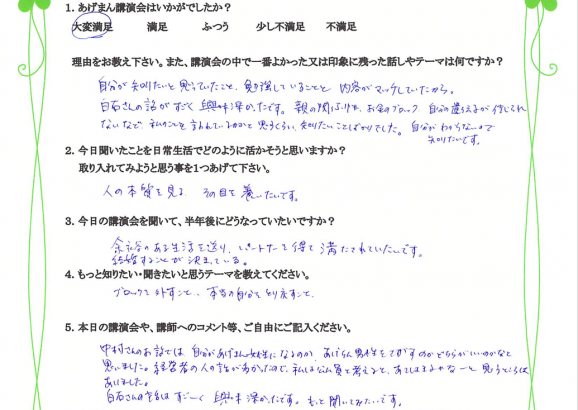 1. あげまん講演会はいかがでしたか？
大変満足 満足 ふつう 少し不満足 不満足
理由をお教え下さい。また、講演会の中で一番よかった又は印象に残った話しやテーマは何ですか？
自分が知りたいと思っていたこと、勉強していることと内容がマッチしていたから。
白石さんの話がすごく興味深かったです。親の関わりや、お金のブロック 自分の違う
ないなどで、私のことを言われているのかと思うくらい、知りたいことばかりでした。自分がわからないので
知りたいです。
2. 今日聞いたことを日常生活でどのように活かそうと思いますか？
取り入れてみようと思う事を1つあげて下さい。
人の本質を見る その目を養いたいです。
3. 今日の講演会を聞いて、半年後にどうなっていたいですか？
余裕のある生活を送り、パートナーを得て満たされていたいです。
結婚することが決まっている。
4. もっと知りたい・聞きたいと思うテーマを教えてください。
ブロックを外すこと、本当の自分をとり戻すこと、
5. 本日の講演会や、講師へのコメント等、ご自由にご記入ください。
中村さんのお話では、自分があげまん女性になるのか、あげちん男性をさがすのかどちらがいいのかなと
思いました。経営者の人の話があったので、私は公務員で考えると、
ありました。
白石さんの すごーく興味深かったです。もっと聞いてみたいです。